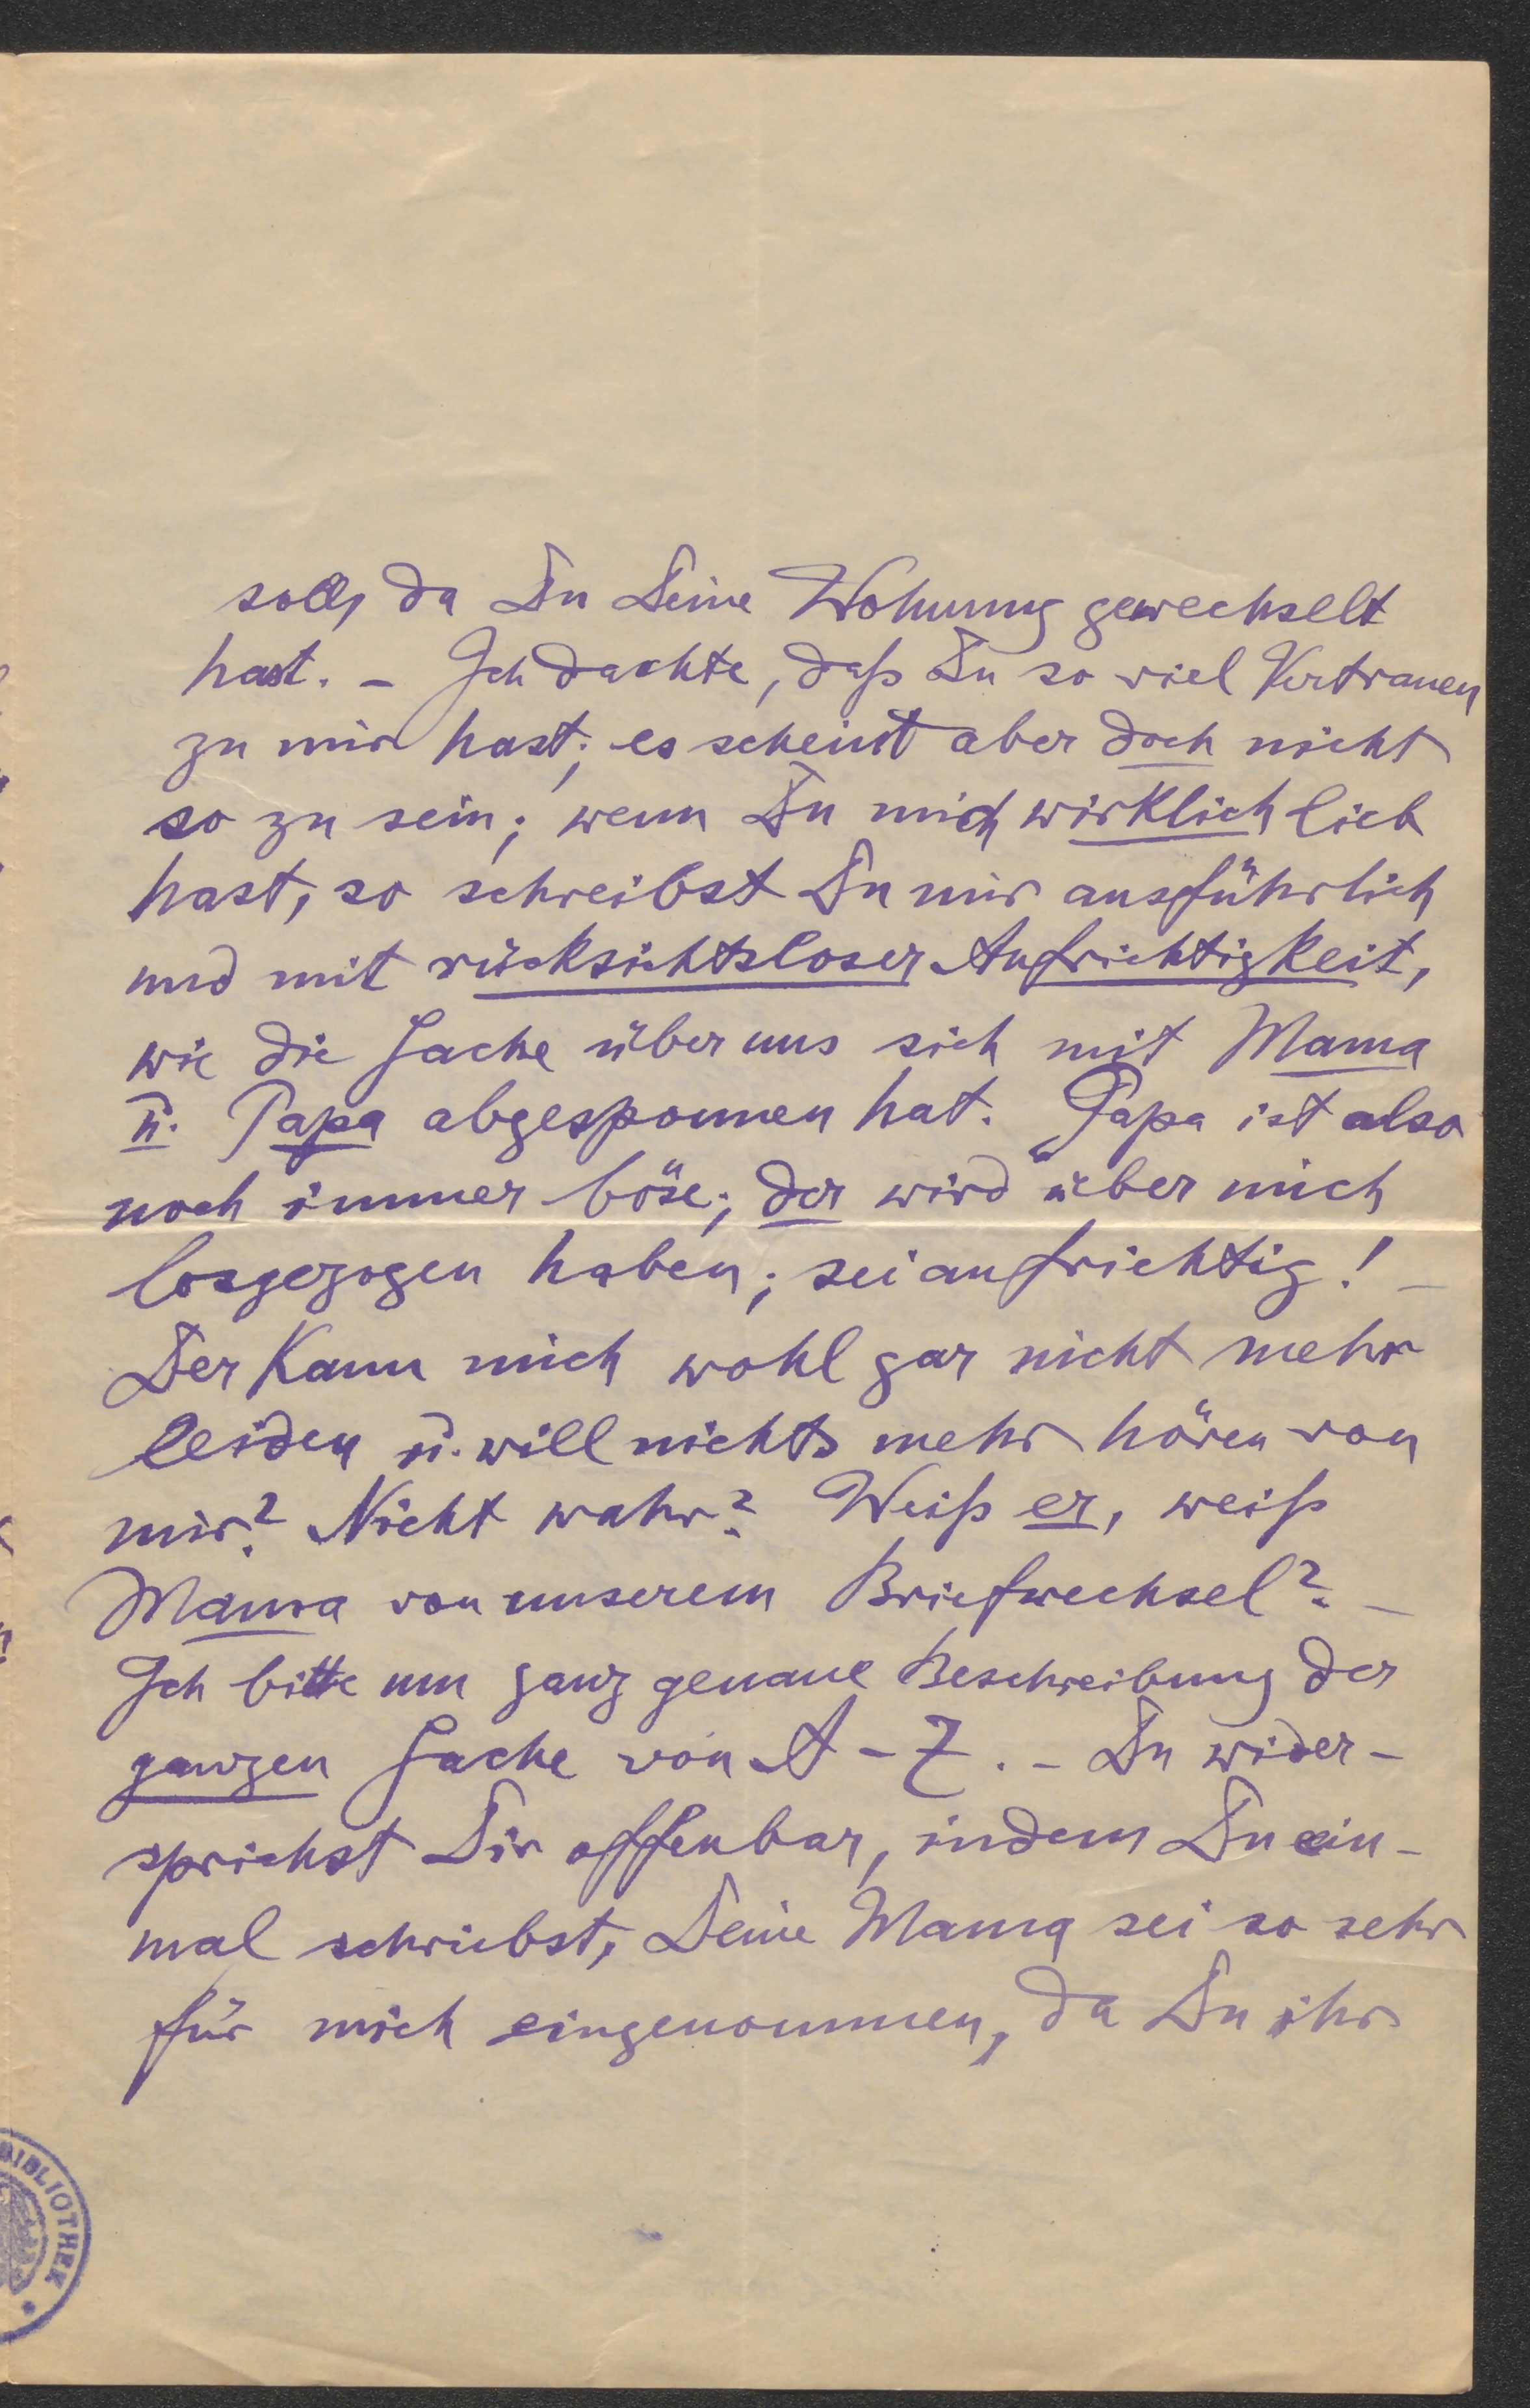 soll, da Du Deine Wohnung gewechselt
hast. – Ich dachte, daß Du so viel Vertrauen
zu mir hast; es scheint aber doch nicht
so zu sein; wenn Du mich wirklich lieb
hast, so schreibst Du mir ausführlich
und mit rücksichtsloser Aufrichtigkeit,
wie die Sache über uns sich mit Mama
u. Papa abgesponnen hat. Papa ist also
noch immer böse; der wird über mich
losgezogen haben; sei aufrichtig! –
Der kann mich wohl gar nicht mehr
leiden u. will nichts mehr hören von
mir? Nicht wahr? Weiß er, weiß
Mama von unserem Briefwechsel? –
Ich bitte um ganz genaue Beschreibung der
ganzen Sache von A – Z. – Du wider-
sprichst Dir offenbar, indem Du ein-
mal schriebst, Deine Mama sei so sehr
für mich eingenommen, da Du ihr
BIBLIOTHEK